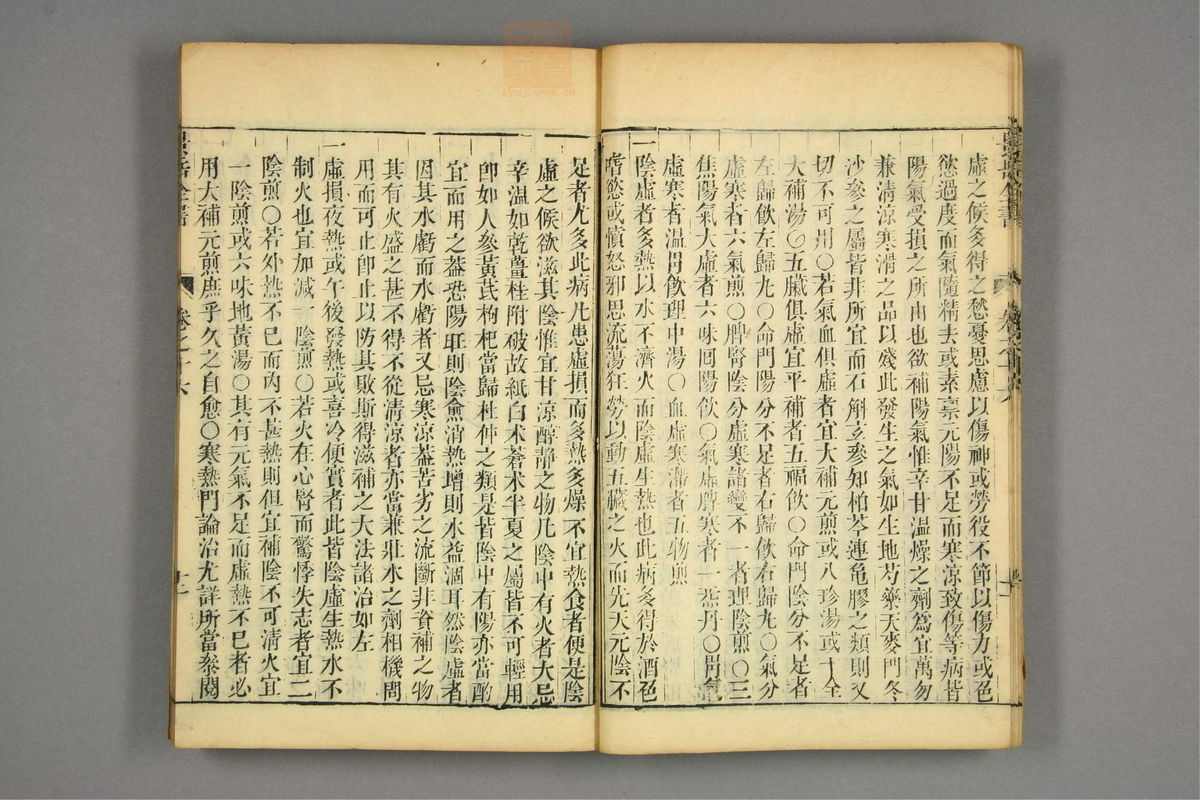 虛之候多得之愁憂思慮以傷神或勞役不節以傷力或色
慾過度而氣隨精去或素稟元陽不足而寒涼致傷等病皆
陽氣受損之所由也欲補陽氣惟辛甘温燥之劑爲宜萬勿
兼清涼寒滑之品以殘此發生之氣如生地芍藥天麥門冬
沙參之屬皆非所宜而石斛玄參知柏芩連龜膠之類則又
切不可用〇若氣血俱虛者宜大補元煎或八珍湯或十全
大補湯〇五臟俱虛宜平補者五福飲〇命門陰分不足者
左歸飲左歸丸〇命門陽分不足者右歸飲右歸丸〇氣分
虛寒者六氣煎〇脾腎陰分虛寒諸變不一者理陰煎〇三
焦陽氣大虛者六味回陽飲〇氣虛脾寒者一炁丹〇胃氣
虛寒者温胃飲理中湯〇血虛寒滯者五物煎
一陰虛者多熱以水不濟火而陰虛生熱也此病多得於酒色
嗜慾或憤怒邪思流蕩狂勞以動五臟之火而先天元陰不
足者尤多此病凡患虛損而多熱多燥不宜熱食者便是陰
虛之候欲滋其陰惟宜甘涼醇靜之物凡陰中有火者大忌
辛温如乾薑桂附破故紙白术蒼术半夏之屬皆不可輕用
卽如人參黃芪枸杞當歸杜仲之類是皆陰中有陽亦當酌
宜而用之蓋恐陽旺則陰愈消熱增則水益涸耳然陰虛者
因其水虧而水虧者又忌寒涼蓋苦劣之流斷非資補之物
其有火盛之甚不得不從清涼者亦當兼壯水之劑相機間
用而可止卽止以防其敗斯得滋補之大法諸治如左
一虛損夜熱或午後發熱或喜冷便實者此皆陰虛生熱水不
制火也宜加減一陰煎〇若火在心腎而驚悸失志者宜二
陰煎〇若外熱不已而內不甚熱則但宜補陰不可清火宜
一陰煎或六味地黃湯〇其有元氣不足而虛熱不已者必
用大補元煎庶乎久之自愈〇寒熱門論治尤詳所當參閱
景岳全書
卷之十六
十二